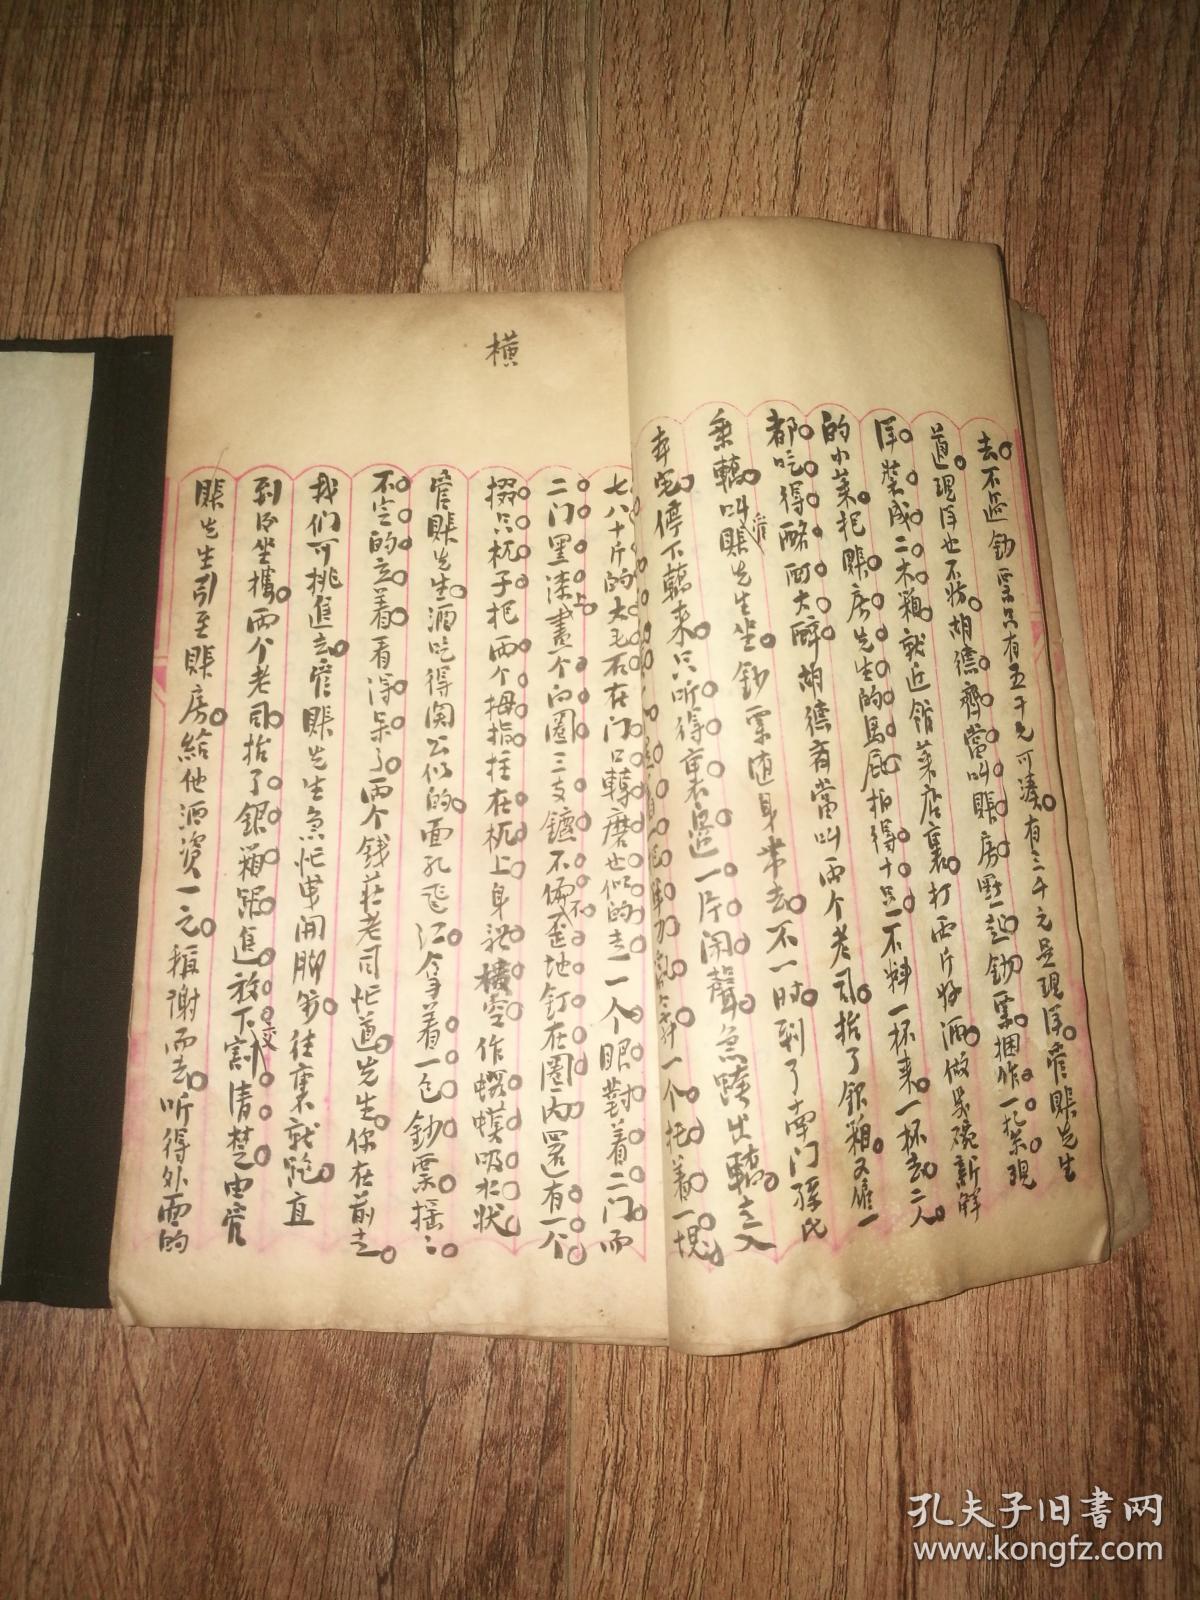 去。不過鈔票只有五千元可湊。有三千元是現洋。管賬先生
道。現洋也不妨。胡德齋當叫賬房點起鈔票捆作一扎。現
洋裝成二木箱。就近館菜店裏。打兩斤好酒。做幾碗新鮮
的小菜。把賬房先生的馬屁拍得十足。不料一杯來一杯去。二人
都吃得酩酊大醉。胡德齋當叫兩个老司。抬了銀箱。又雇一
乘轎。叫管賬先生坐。鈔票随身带去。不一时。到了南门孫氏
停下轎來。只听得裏邊一片閙聲。急踱出轎。走入
一个托着一塊
七八十斤的大毛石在门口轉磨也似的走。一个眼對着二门。而
二门上黑漆畫一个白圈。三支鑣不偏不歪地钉在圈内。還有一个
掇只杌子。把两个拇指拄在杌上。身躰横空作蝦蟆吸水状。
管賬先生。酒吃得関公似的面孔飞红。拿着一包鈔票。摇
不定的立着看得呆了。两个钱莊老司忙道。先生。你在前走。
我们可挑進去。管賬先生急忙曳開脚步。往裏就跑。直
到坐樓。两个老司抬了銀箱跟進。放下交割清楚。由管
賬先生引至賬房。給他酒資一元。稱谢而去。听得外面的
横
孔夫子旧書网
www.kongfz.com